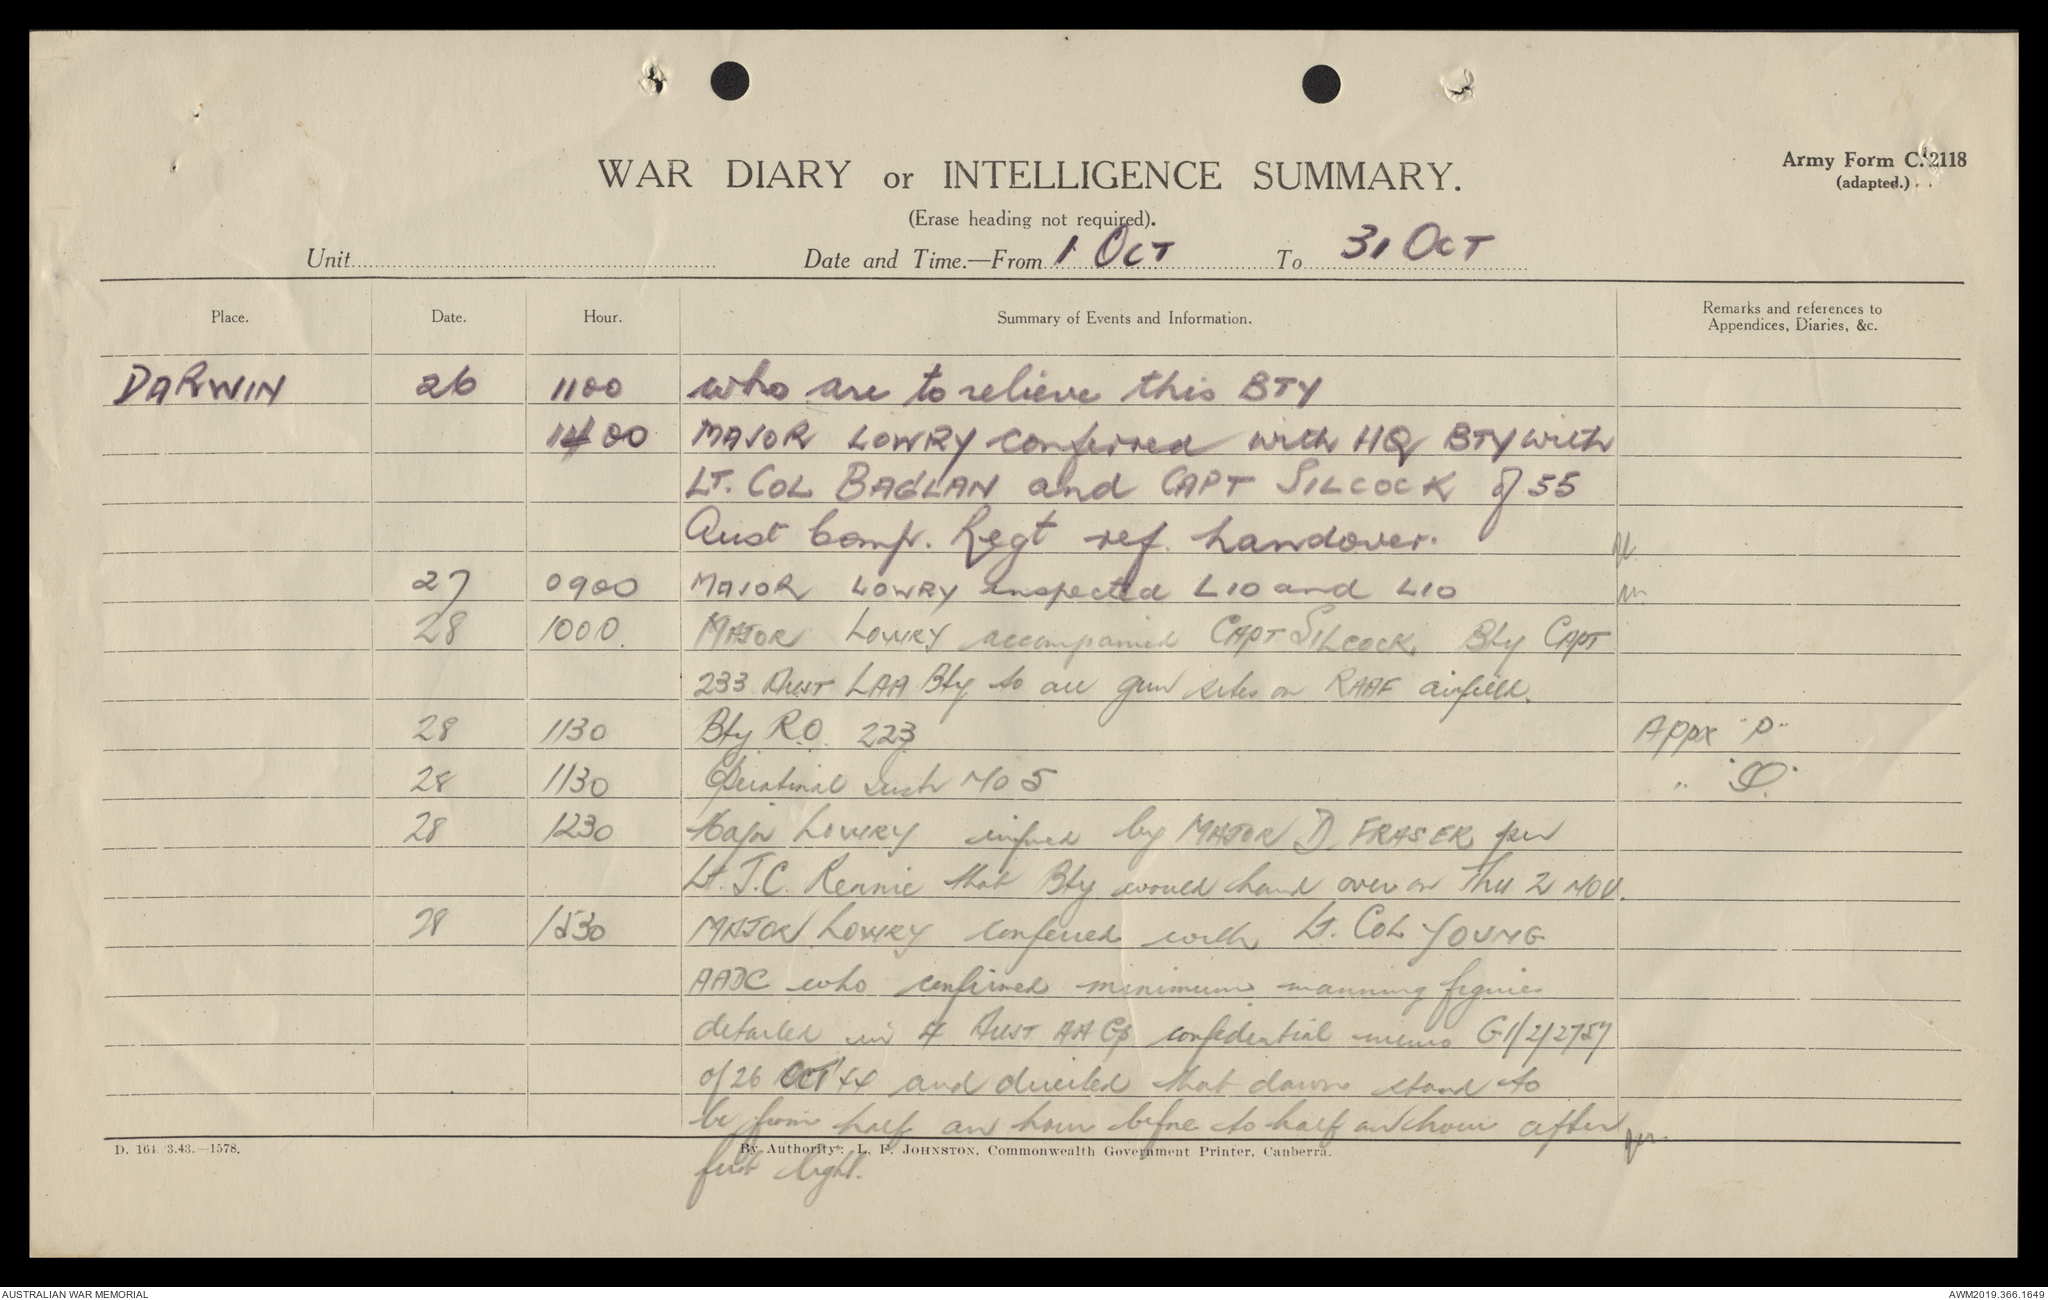 Army Form C. 2118
(adapted.)
WAR DIARY or INTELLIGENCE SUMMARY.
(Erase heading not required).
Unit Date and Time.—From 1 OCT To 31 OCT
Place. Date. Hour. Summary of Events and Information. Remarks and references to Appendices, Diaries, &c.
DARWIN 26 1100 who are to relieve this BTY
1400 MAJOR LOWRY conferred with HQ BTY with
LT. COL BAGLAN and CAPT SILCOCK of 55
Aust Comp. Regt ref. handover.
27 0900 MAJOR LOWRY inspected L10 and L10
28 1000. MAJOR LOWRY accompanied CAPT SILCOCK, Bty CAPT
233 AUST LAA Bty to all gun sites on RAAF airfield.
28 1130 Bty R.O. 223 Appx "P"
28 1130 Operational Instr NO 5 " "Q"
28 1230 Major LOWRY informed by MAJOR D. FRASER per
Lt. J.C. Rennie that Bty would hand over on Thu 2 NOV.
28 1530 MAJOR LOWRY conferred with Lt. COL YOUNG
AADC who confirmed minimum manning figures
detailed in 4 AUST AA Gp confidential memo G1/2/2757
of 26 OCT 44 and directed that dawn stand to
be from half an hour before to half an hour after
first light.
D. 164/3.43.—1578. By Authority: L. F. JOHNSTON, Commonwealth Government Printer, Canberra.
AUSTRALIAN WAR MEMORIAL AWM2019.366.1649